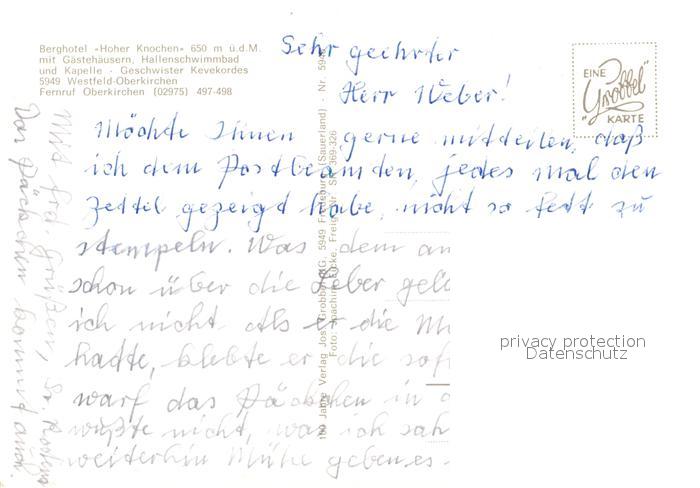 Berghotel «Hoher Knochen» 650 m ü.d.M.
mit Gästehäusern, Hallenschwimmbad
und Kapelle · Geschwister Kevekordes
5949 Westfeld-Oberkirchen
Fernruf Oberkirchen (02975) 497-498
EINE
"Grobbel"
KARTE
Sehr geehrter
Herr Weber!
Möchte Ihnen gerne mitteilen, daß
ich dem Postbeamten, jedes mal den
Zettel gezeigt habe, nicht so fett zu
stempeln. Was dem an
schon über die Leber gel
ich nicht. Als er die M
hatte, klebte er die sof
warf das Päckchen in d
wußte nicht, was ich sah
weiterhin Mühe geben es
Mit frd. Grüßen,
Das Päckchen kommt auch.
100 Jahre Verlag Jos. Grobbel KG, 5949 Fredeburg (Sauerland)
privacy protection
Datenschutz